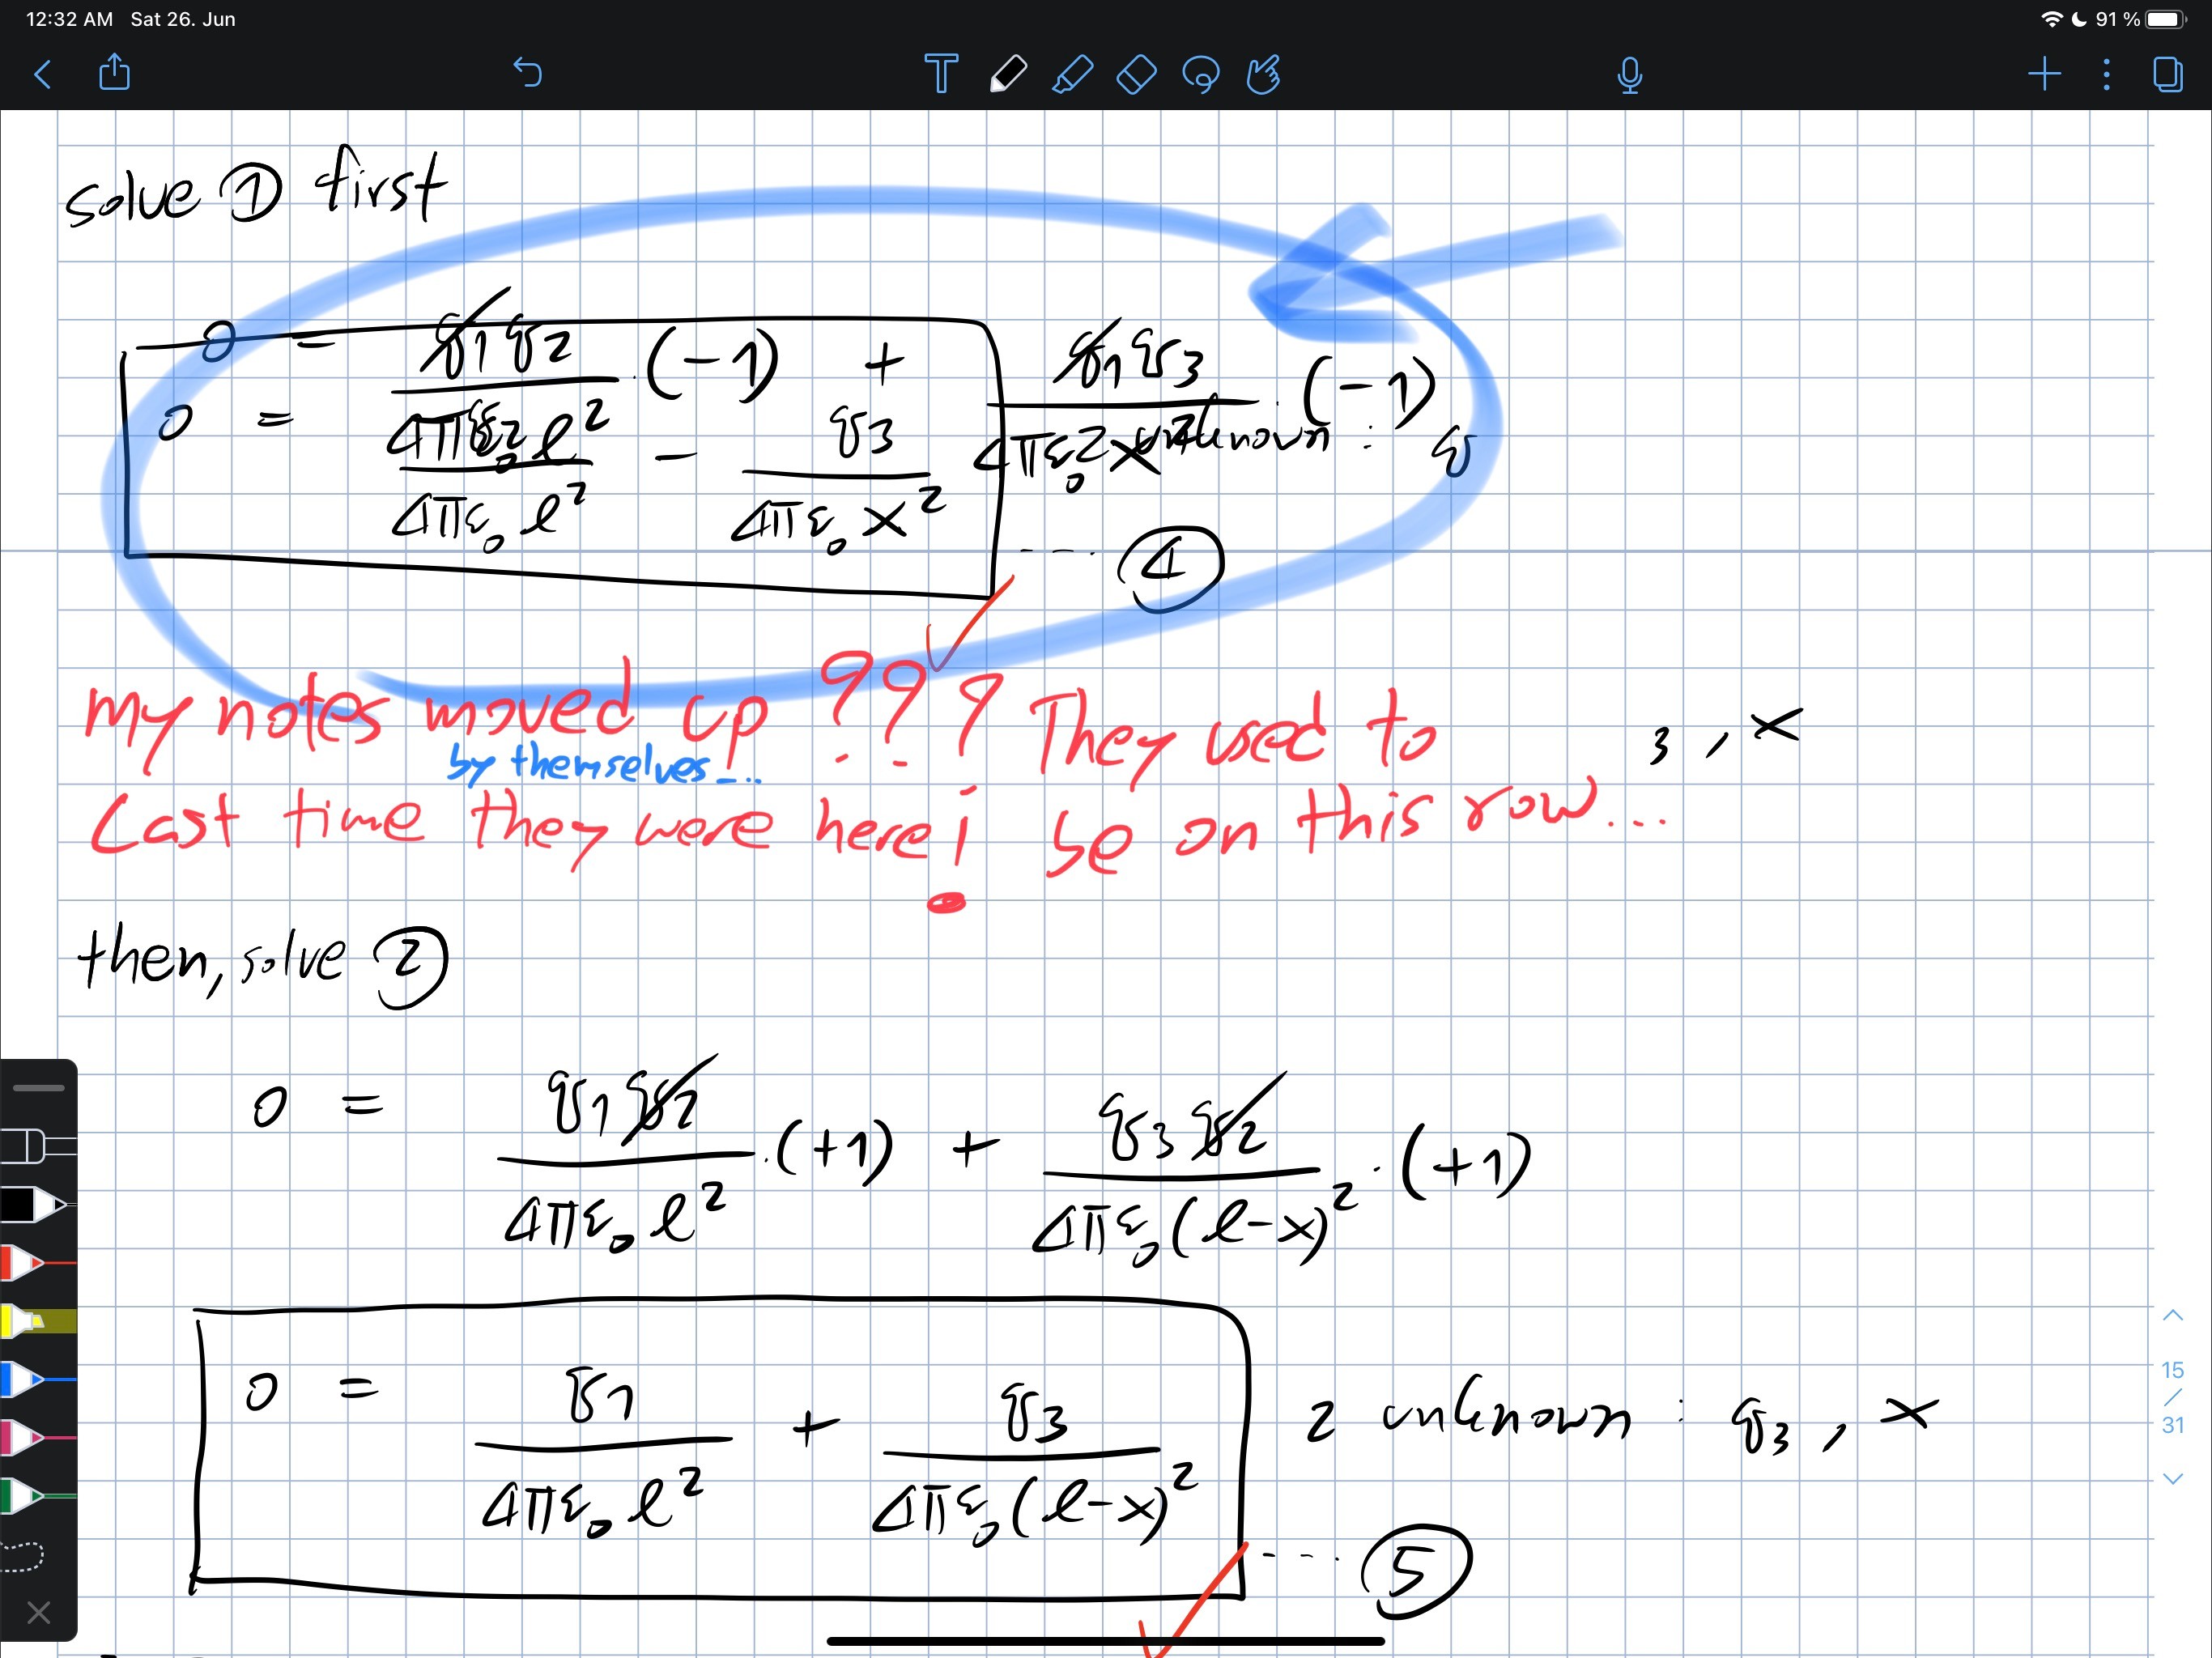 12:32 AM Sat 26. Jun 91 %
solve ① first
0 = q1q2 / 4πε0 l² · (-1) + q1q3 / 4πε0 x² · (-1)
0 = q2 / 4πε0 l² - q3 / 4πε0 x² 2 unknown : q
---- ④
my notes moved up ??? They used to 3 , x
by themselves....
Last time they were here! be on this row...
then, solve ②
0 = q1q2 / 4πε0 l² · (+1) + q3q2 / 4πε0 (l-x)² · (+1)
0 = q1 / 4πε0 l² + q3 / 4πε0 (l-x)² 2 unknown : q3 , x
---- ⑤
15
/
31